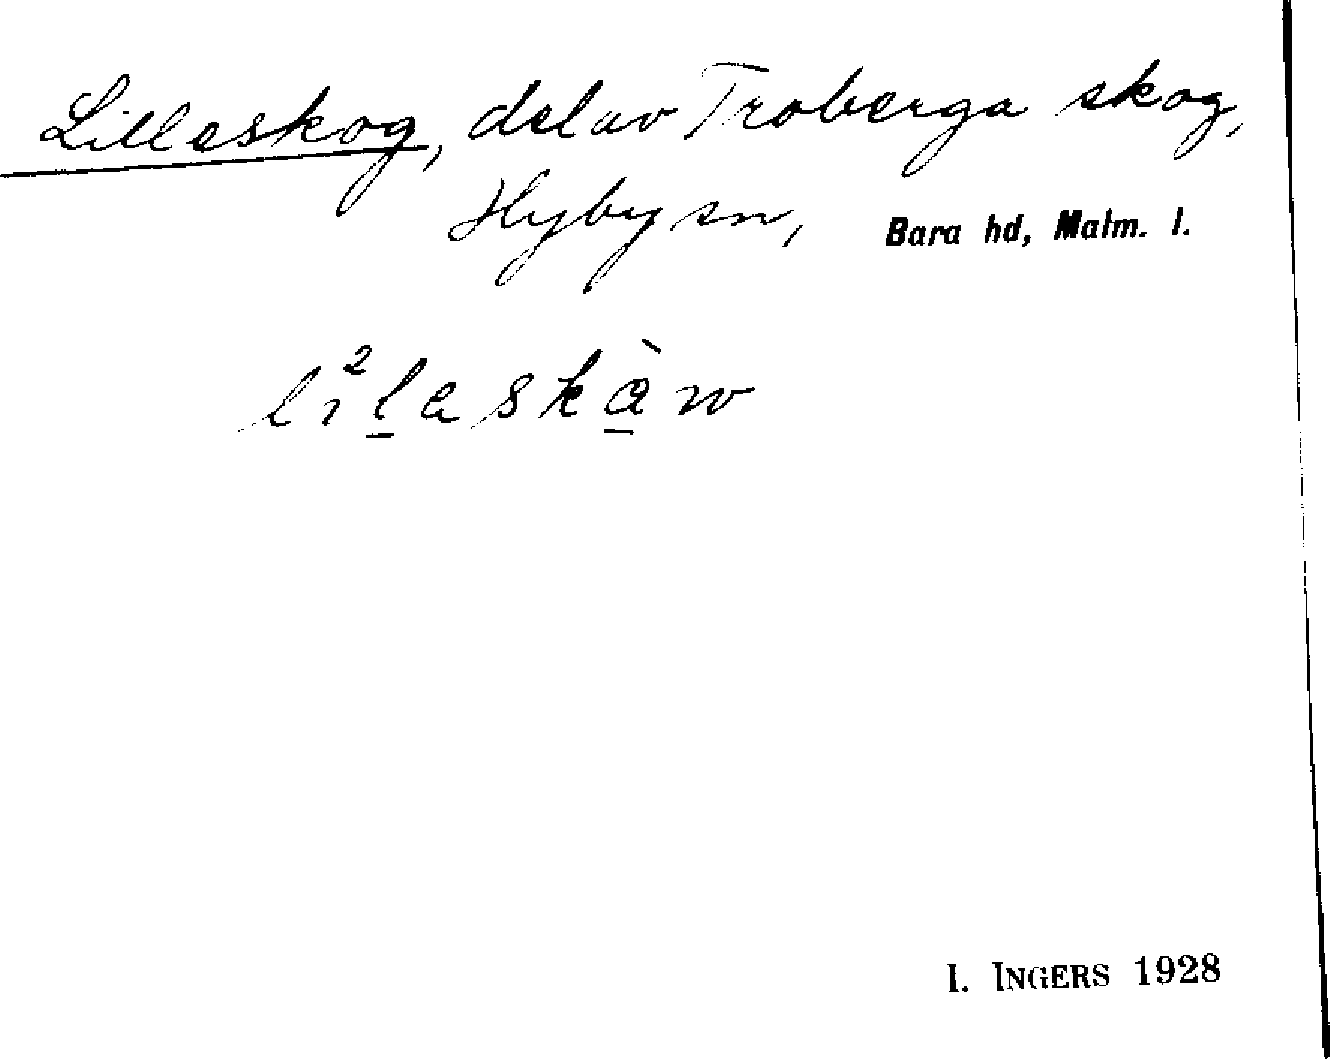 Lilleskog, del av Troberga skog,
Hyby sn, Bara hd, Malm. l.
li²l̲askà̲w
I. INGERS 1928